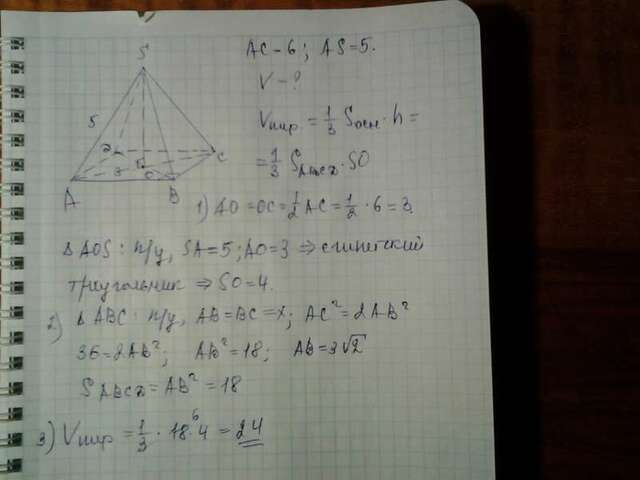 AC - 6; AS = 5.
V - ?
Vпир = 1/3 Sосн · h =
= 1/3 SABCD · SO
S
5
D
C
3
O
A
B
1) AO = OC = 1/2 AC = 1/2 · 6 = 3.
Δ AOS: п/у, SA = 5; AO = 3 ⇒ египетский
треугольник ⇒ SO = 4.
2) Δ ABC: п/у, AB = BC = x; AC² = 2AB²
36 = 2AB²; AB² = 18; AB = 3√2
SABCD = AB² = 18
3) Vпир = 1/3 · 18 6 · 4 = 24